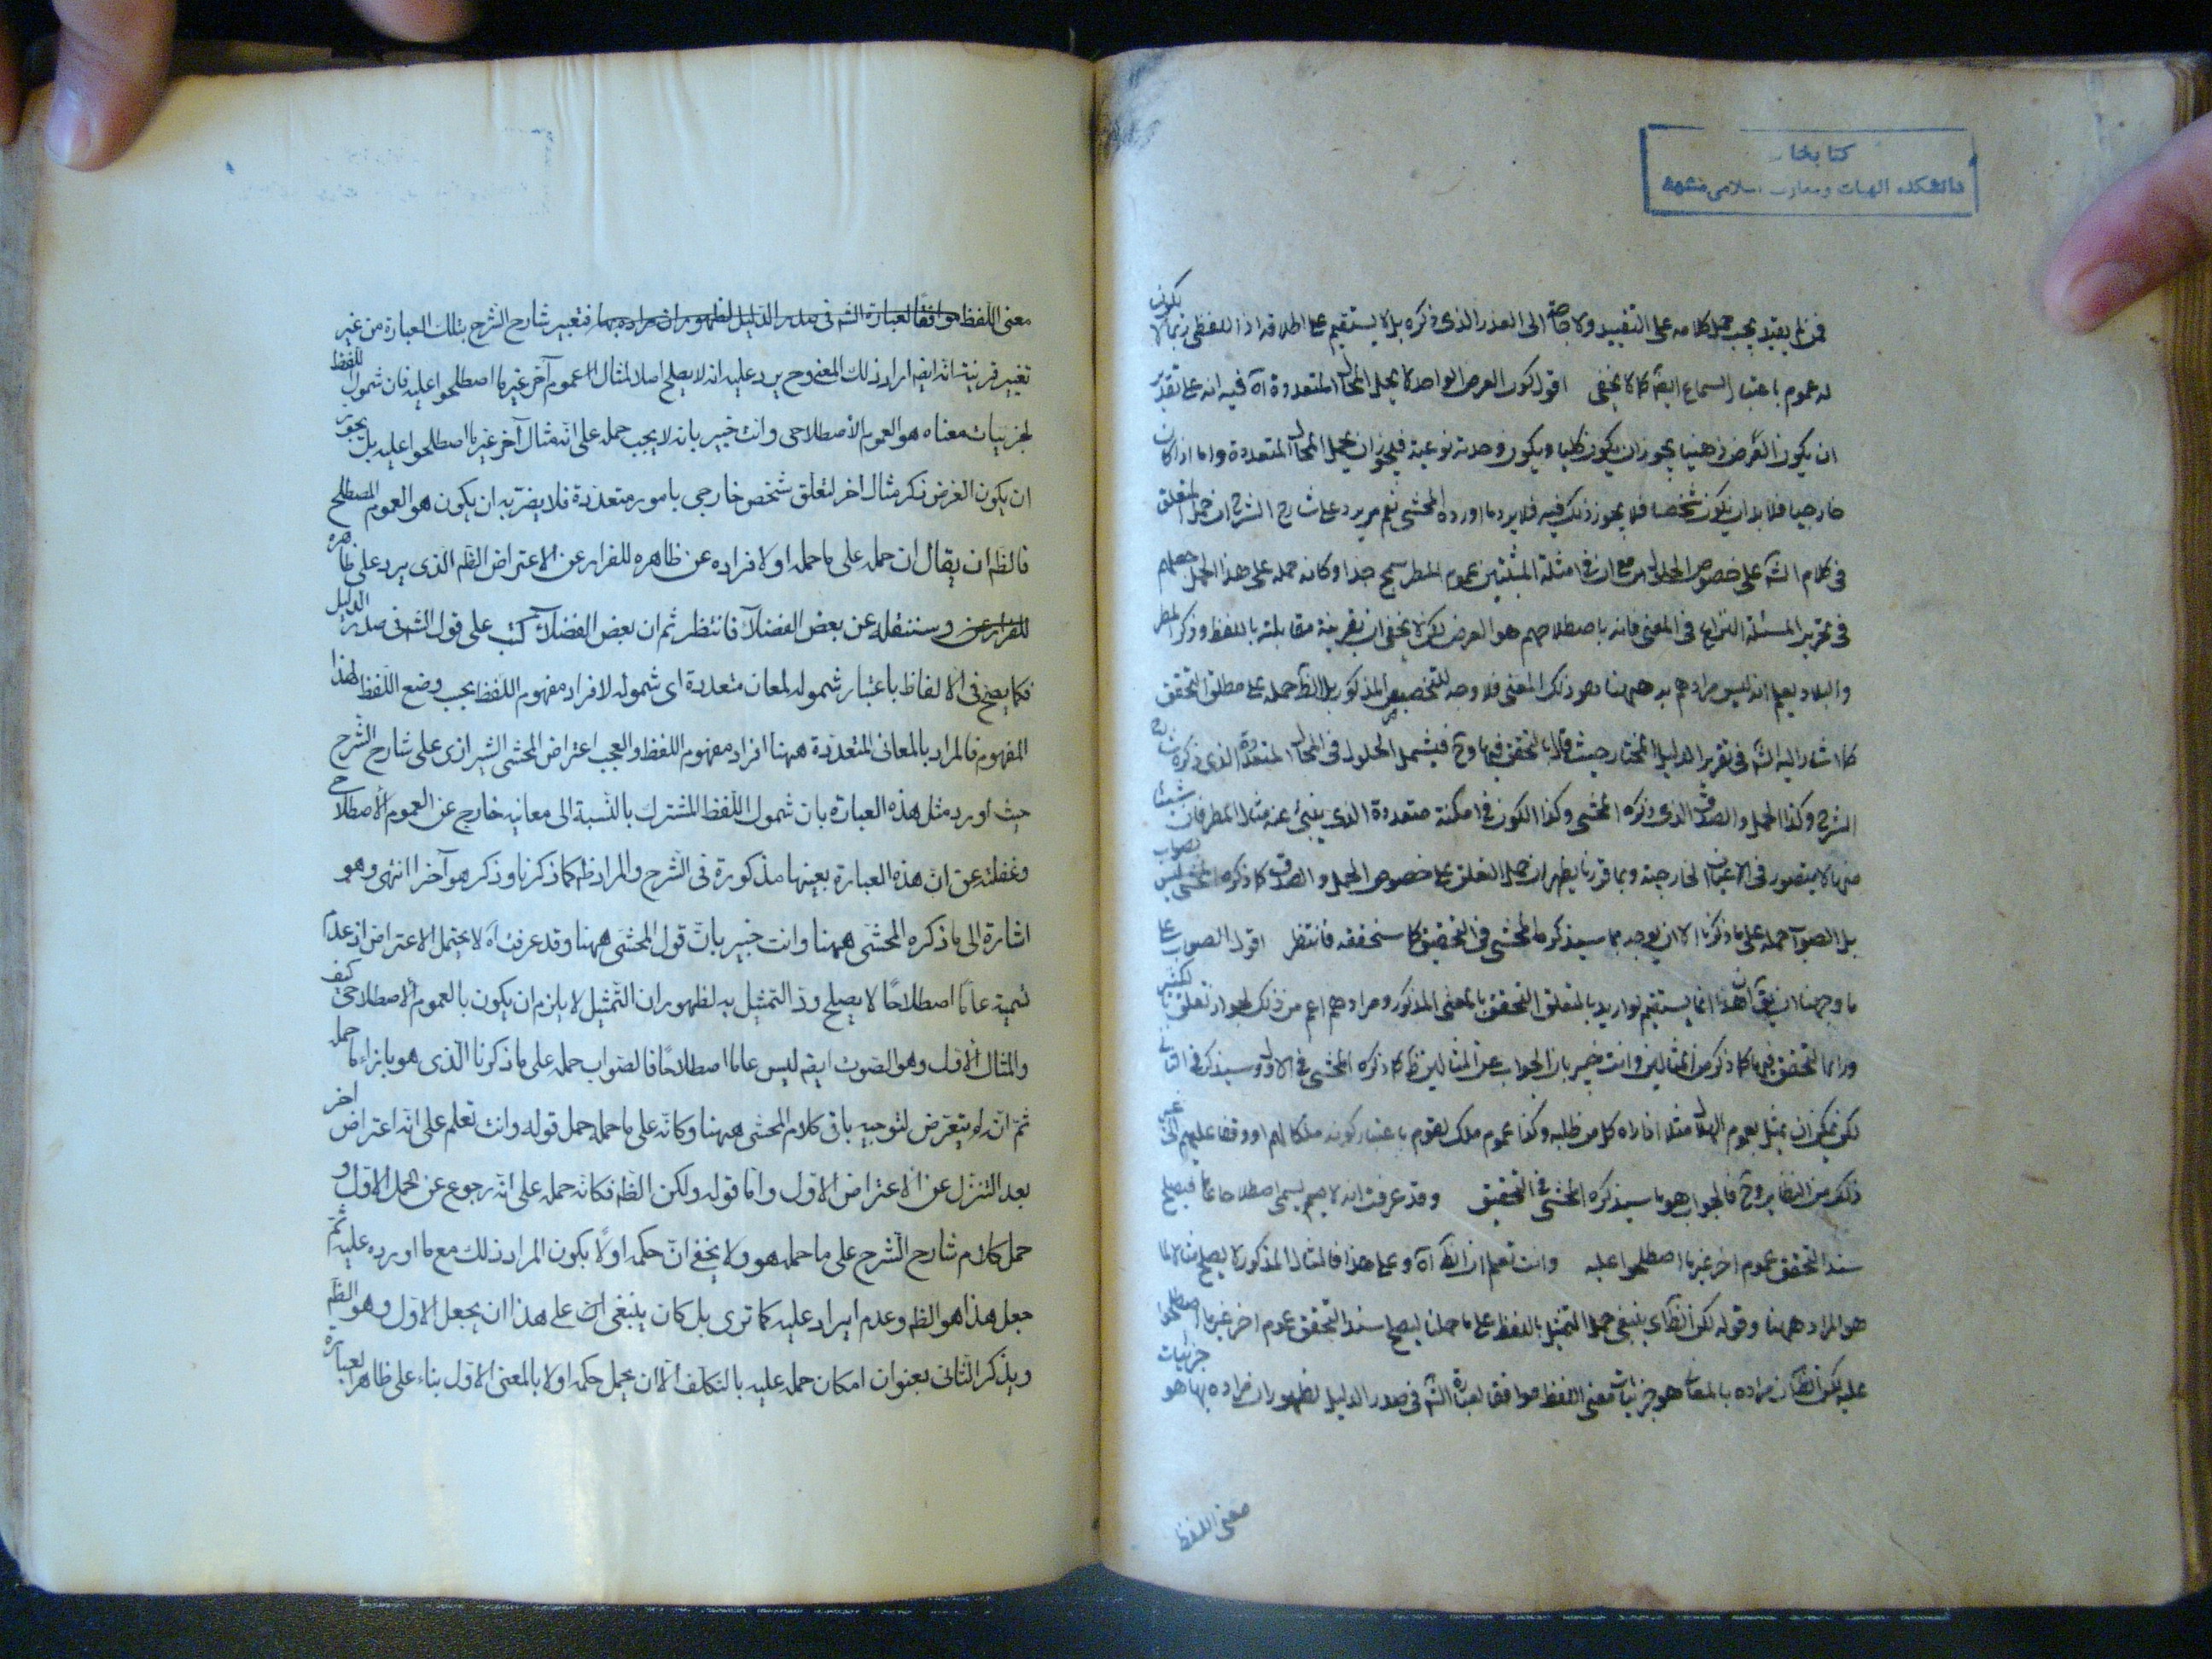 كتابخانه
دانشكده الهيات و معارف اسلامى مشهد
فمن لم يقيد يجب حمل كلامه على التقييد ولا حاجة الى العذر الذى ذكره بل لا يستقيم على اطلاقه اذ اللفظى ربما لا يكون
له عموم باعتبار السماع ايضا كما لا يخفى اقول كون العرض الواحد لا يحل المحال المتعددة آه فيه انه على تقدير
ان يكون العرض ذهنيا يجوز ان يكون كليا ويكون وحدته نوعية فيجوز ان يحمل المحال المتعددة واما اذا كان
خارجيا فلا بد ان يكون شخصا فلا يجوز ذلك فيه فلا يرد ما اورده المحشى نعم يرد على شارح الشرح ان حمل المتعلق
فى كلام الشه على خصوص الحلول مع ان فى امثلة المثبتين عموم المطر سمج جدا وكانه حمله على هذا الحمل جعلهم
فى تحرير المسئلة النزاع فى المعنى فانه باصطلاحهم هو العرض لكن لا يخفى ان بقرينة مقابلته باللفظ وذكر المطر
والبلاد يعلم انه ليس مرادهم به ههنا هو ذلك المعنى فلا وجه للتخصيص المذكور بل الظ حمله على مطلق التحقق
كما اشار اليه الشه فى تقرير الدليل المختار حيث قال بالتحقق فيها وح فيشمل الحلول فى المحال المتعددة الذى ذكره شارح
الشرح وكذا الحمل والصدق الذى ذكره المحشى وكذا الكون فى امكنة متعددة الذى ينبئ عنه مثال المطر فان شيئا
منها لا يتصور فى الاعيان الخارجية وبما قررنا يظهر ان حمل التعلق على خصوص الحمل والصدق كما ذكره المحشى ليس بصواب
بل الصواب حمله على ما ذكرنا الا ان يوجه بما سيذكره المحشى فى التحقيق كما سنحققه فانتظر اقول الصواب على
ما وجهنا ان يق ان هذا انما يستقيم لو اريد بالمتعلق التحقق بالمعنى المذكور ومرادهم اعم من ذلك لجواز تعلق
وراء التحقق فيها كما ذكر من المثالين وانت خبير بان الجواب عن المثالين ظ كما ذكره المحشى فى الاول وسيذكر فى الثانى
لكن يمكن ان يمثل بعموم الهلال مثلا اذا راه كل من طلبه وكذا عموم ملك لقوم باعتبار كونه ملكا لهم او وقفا عليهم الى غير
ذلك من النظاير وح فالجواب هو ما سيذكره المحشى فى التحقيق وقد عرفت انه لا يصح يسمى اصطلاحا عاما فيصلح
سند التحقق عموم اخر غير ما اصطلحوا عليه وانت تعلم ان الظ آه وعلى هذا فالمثال المذكور لا يصلح مثالا لما
هو المراد ههنا وقوله لكن الظ اى ينبغى حمل التمثيل باللفظ على ما حملنا ليصلح سند التحقق عموم اخر غير ما اصطلحوا
عليه لكن الظ ان مراده بالمعانى هو جزئيات معنى اللفظ موافقا لعبارة الشه فى صدر الدليل لظهور ان مراده بها هو جزئيات
معنى اللفظ
معنى اللفظ موافقا لعبارة الشه فى صدر الدليل لظهور ان مراده بها فتعبير شارح الشرح بتلك العبارة من غير
تغيير قرينة انه ايضا اراد ذلك المعنى وح يرد عليه انه لا يصلح اصلا لمثال العموم آخر غير ما اصطلحوا عليه فان شمول اللفظ
لجزئيات معناه هو العموم الاصطلاحى وانت خبير بانه لا يجب حمله على انه مثال آخر غير ما اصطلحوا عليه بل يجوز
ان يكون الغرض ذكر مثال اخر لتعلق شخص خارجى بامور متعددة فلا يضر به ان يكون هو العموم المصطلح
فالظ ان يقال ان حمله على ما حمله اولا فراده عن ظاهره للفرار عن الاعتراض الظ الذى يرد على ظاهره
للفرار عن وسننقله عن بعض الفضلآ فانتظر ثم ان بعض الفضلآ كتب على قول الشه فى صدر الدليل
فكما يصح فى الالفاظ باعتبار شموله لمعان متعددة اى شموله لافراد مفهوم اللفظ بحسب وضع اللفظ لهذا
المفهوم فالمراد بالمعانى المتعددة ههنا افراد مفهوم اللفظ والعجب اعتراض المحشى الشيرازى على شارح الشرح
حيث اورد مثل هذه العبارة بان شمول اللفظ المشترك بالنسبة الى معانيه خارج عن العموم الاصطلاحى
وغفلته عن ان هذه العبارة بعينها مذكورة فى الشرح والمراد ظ كما ذكرنا وذكر هو آخرا انتهى وهو
اشارة الى ما ذكره المحشى ههنا وانت خبير بان قول المحشى ههنا وقد عرفت آه لا يحتمل الاعتراض اذ عدم
تسمية عاما اصطلاحا لا يصلح رد التمثيل به لظهور ان التمثيل لا يلزم ان يكون بالعموم الاصطلاحى كيف
والمثال الاول وهو الصوت ايضا ليس عاما اصطلاحا فالصواب حمله على ما ذكرنا الذى هو بازاء ما حمله
ثم انه لم يتعرض لتوجيه باقى كلام المحشى ههنا وكانه على ما حمله حمل قوله وانت تعلم على انه اعتراض اخر
بعد التنزل عن الاعتراض الاول واما قوله ولكن الظ فكانه حمله على انه رجوع عن الحمل الاول و
حمل كلام شارح الشرح على ما حمله هو ولا يخفى ان حكمه اولا بكون المراد ذلك مع ما اورده عليه ثم
جعل هذا هو الظ وعدم ايراد عليه كما ترى بل كان ينبغى ان على هذا ان يجعل الاول وهو الظ
ويذكر الثانى بعنوان امكان حمله عليه بالتكلف الا ان يحمل حكمه اولا بالمعنى الاول بناء على ظاهر العبارة